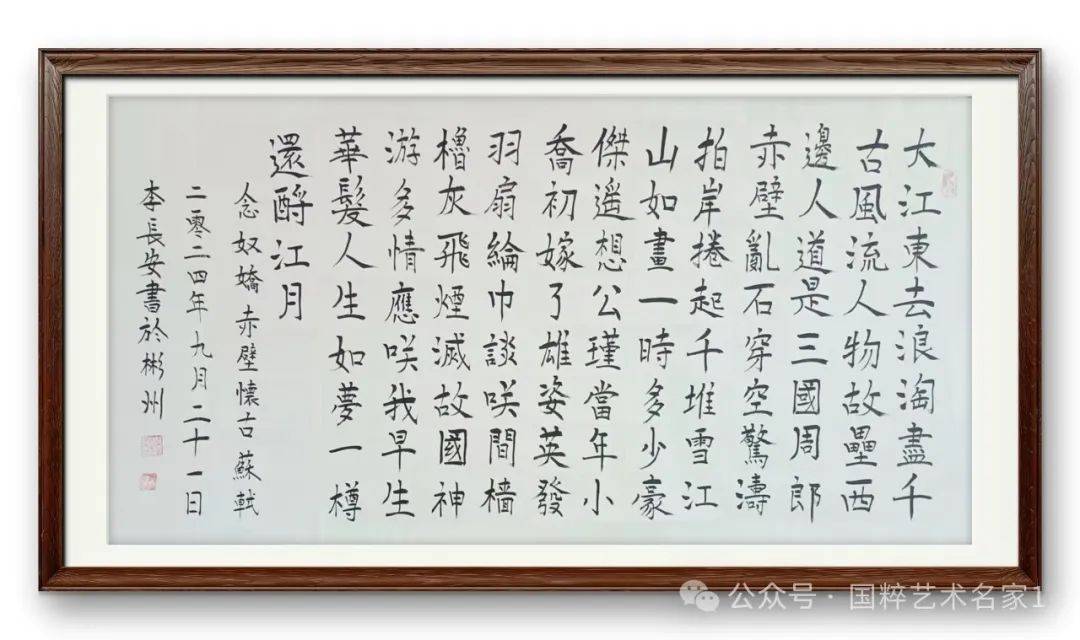 大江東去浪淘盡千
古風流人物故壘西
邊人道是三國周郎
赤壁亂石穿空驚濤
拍岸捲起千堆雪江
山如畫一時多少豪
傑遥想公瑾當年小
喬初嫁了雄姿英發
羽扇綸巾談咲間檣
櫓灰飛煙滅故國神
游多情應咲我早生
華髮人生如夢一樽
還酹江月
念奴嬌赤壁懷古蘇軾
二零二四年九月二十一日
李長安書於彬州
公众号·国粹艺术名家1